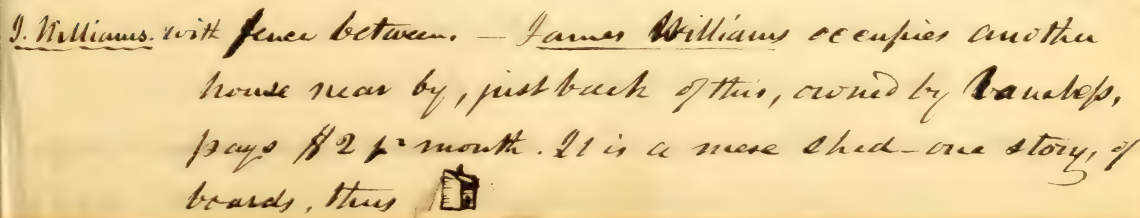 J. Williams. with fence between. — James Williams occupies another
house near by, just back of this, owned by
pays $2 pr month. It is a mere shed—one story, of
boards, thus